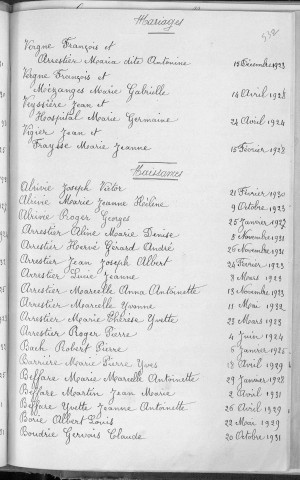 Mariages
Vergne François et
Arrestier Maria dite Antonine 15 Décembre 1923
Vergne François et
Moizanges Marie Gabrielle 14 Avril 1928
Veyssière Jean et
Hospital Marie Germaine 24 Avril 1924
Vigier Jean et
Fraysse Marie Jeanne 15 Février 1927
Naissances
Alrivie Joseph Victor 21 Février 1930
Alrivie Marie Jeanne Hélène 9 Octobre 1923
Alrivie Roger Georges 25 Janvier 1927
Arrestier Aline Marie Denise 3 Novembre 1931
Arrestier Hervé Gérard André 26 Novembre 1931
Arrestier Jean Joseph Albert 24 Février 1923
Arrestier Lucie Jeanne 8 Mars 1923
Arrestier Marcelle Anna Antoinette 13 Novembre 1923
Arrestier Marcelle Yvonne 11 Mai 1932
Arrestier Marie Thérèse Yvette 23 Mars 1923
Arrestier Roger Pierre 4 Juin 1924
Bach Robert Pierre 6 Janvier 1926
Barrière Marie Pierre Yves Avril 1929
Beffare Marie Marcelle Antoinette 29 Janvier 1928
Beffare Martin Jean Marie 2 Avril 1931
Beffare Yvette Jeanne Antoinette 26 Avril 1929
Borie Albert Louis 22 Mars 1929
Boudrie Gervais Claude 20 Octobre 1931